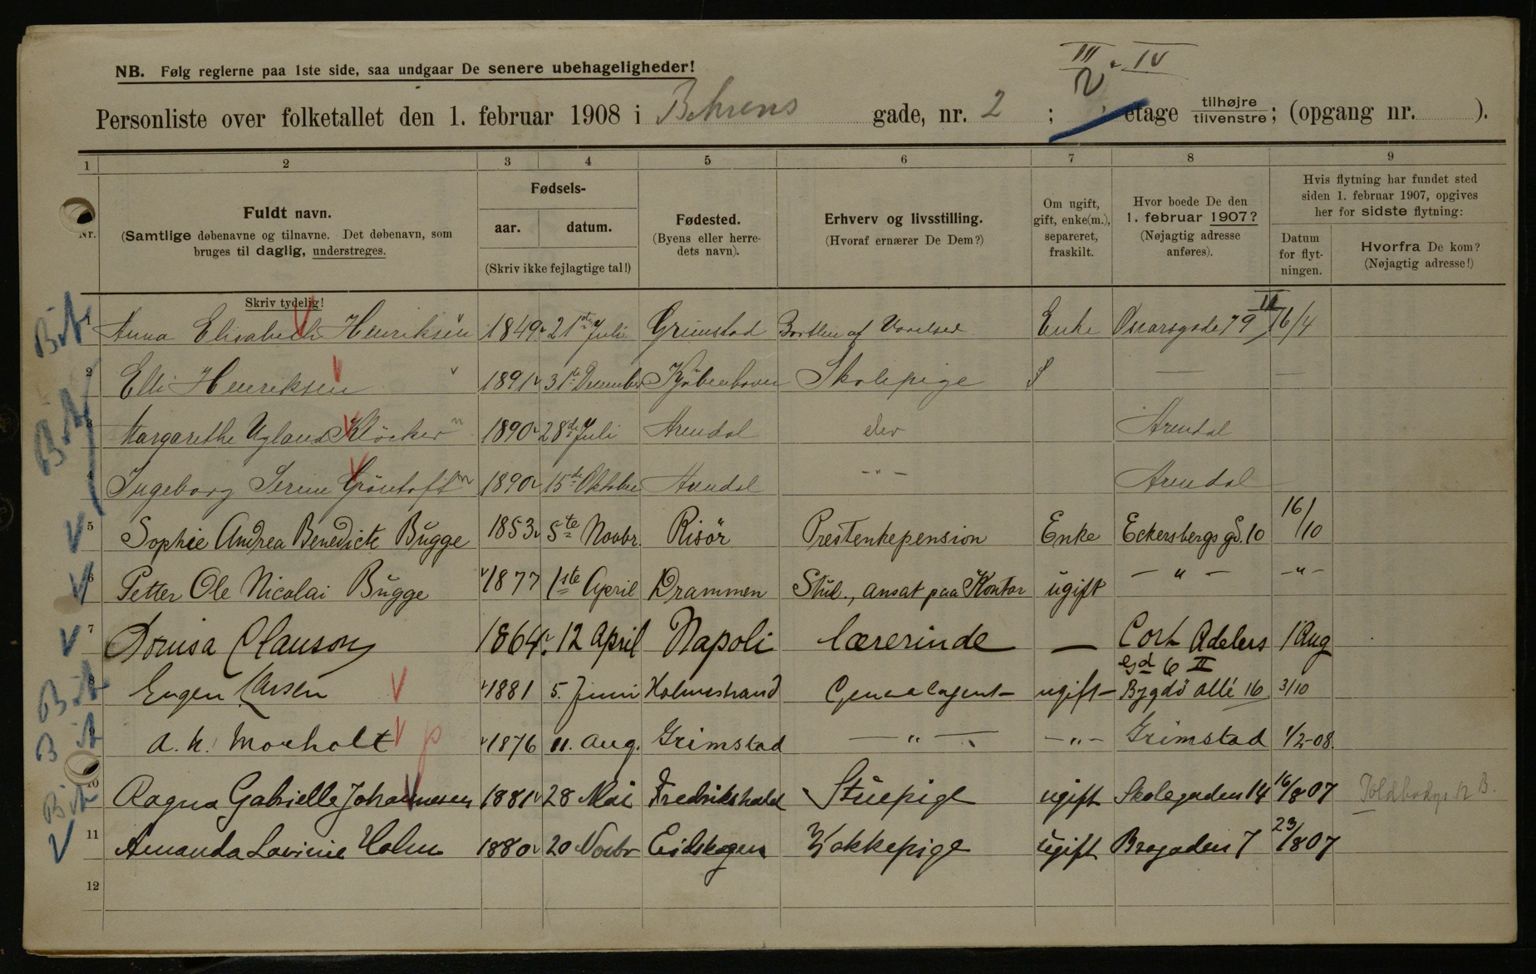 III. IV
NB. Følg reglerne paa 1ste side, saa undgaar De senere ubehageligheder!
Personliste over folketallet den 1. februar 1908 i Behrens gade, nr. 2 ; etage tilhøjre tilvenstre ; (opgang nr. ).
1 2 3 4 5 6 7 8 9
Nr.
Fuldt navn.
(Samtlige døbenavne og tilnavne. Det døbenavn, som bruges til daglig, understreges.
Fødsels-
aar. datum.
(Skriv ikke fejlagtige tal!)
Fødested.
(Byens eller herredets navn).
Erhverv og livsstilling.
(Hvoraf ernærer De Dem?)
Om ugift, gift, enke(m.), separeret, fraskilt.
Hvor boede De den 1. februar 1907?
(Nøjagtig adresse anføres).
Hvis flytning har fundet sted siden 1. februar 1907, opgives her for sidste flytning:
Datum for flytningen.
Hvorfra De kom?
(Nøjagtig adresse!)
Skriv tydelig!
1 Anna Elisabeth Henriksen 1849 21de Juli Grimstad Enke Oscarsgade 79 II 16/4
2 Elli Henriksen 1891 31te December Kjøbenhavn Skolepige — —
3 Margarethe Ugland Kløcker 1890 28de Juli Arendal elev Arendal
4 Ingeborg Serine Grøntoft 1890 15de Oktober Arendal - " - Arendal
5 Sophie Andrea Benedicte Bugge 1853 5te Novbr. Risör Prestenkepension Enke Eckersbergs gd. 10 16/10
6 Petter Ole Nicolai Bugge 1877 1ste April Drammen Stud., ansat paa Kontor ugift — " — - " -
7 Clauson 1864 12 April Napoli lærerinde — Cort Adelers gd 6 II 1 Aug
8 Eugen Larsen 1881 5. Juni Holmestrand ugift Bygdö allé 16 3/10
9 A. N. Morholt 1876 11. Aug. Grimstad — " — - " - Grimstad 1/2-08.
10 Ragna Gabrielle Johannesen 1881 28 Mai Fredrikshald Stuepige ugift Skolegaden 14 16/8 07 Toldbodg. 12 B.
11 Amanda Lovinie Holm 1880 20 Novbr Eidskogen Kokkepige ugift Brogaden 7 23/8 07
12